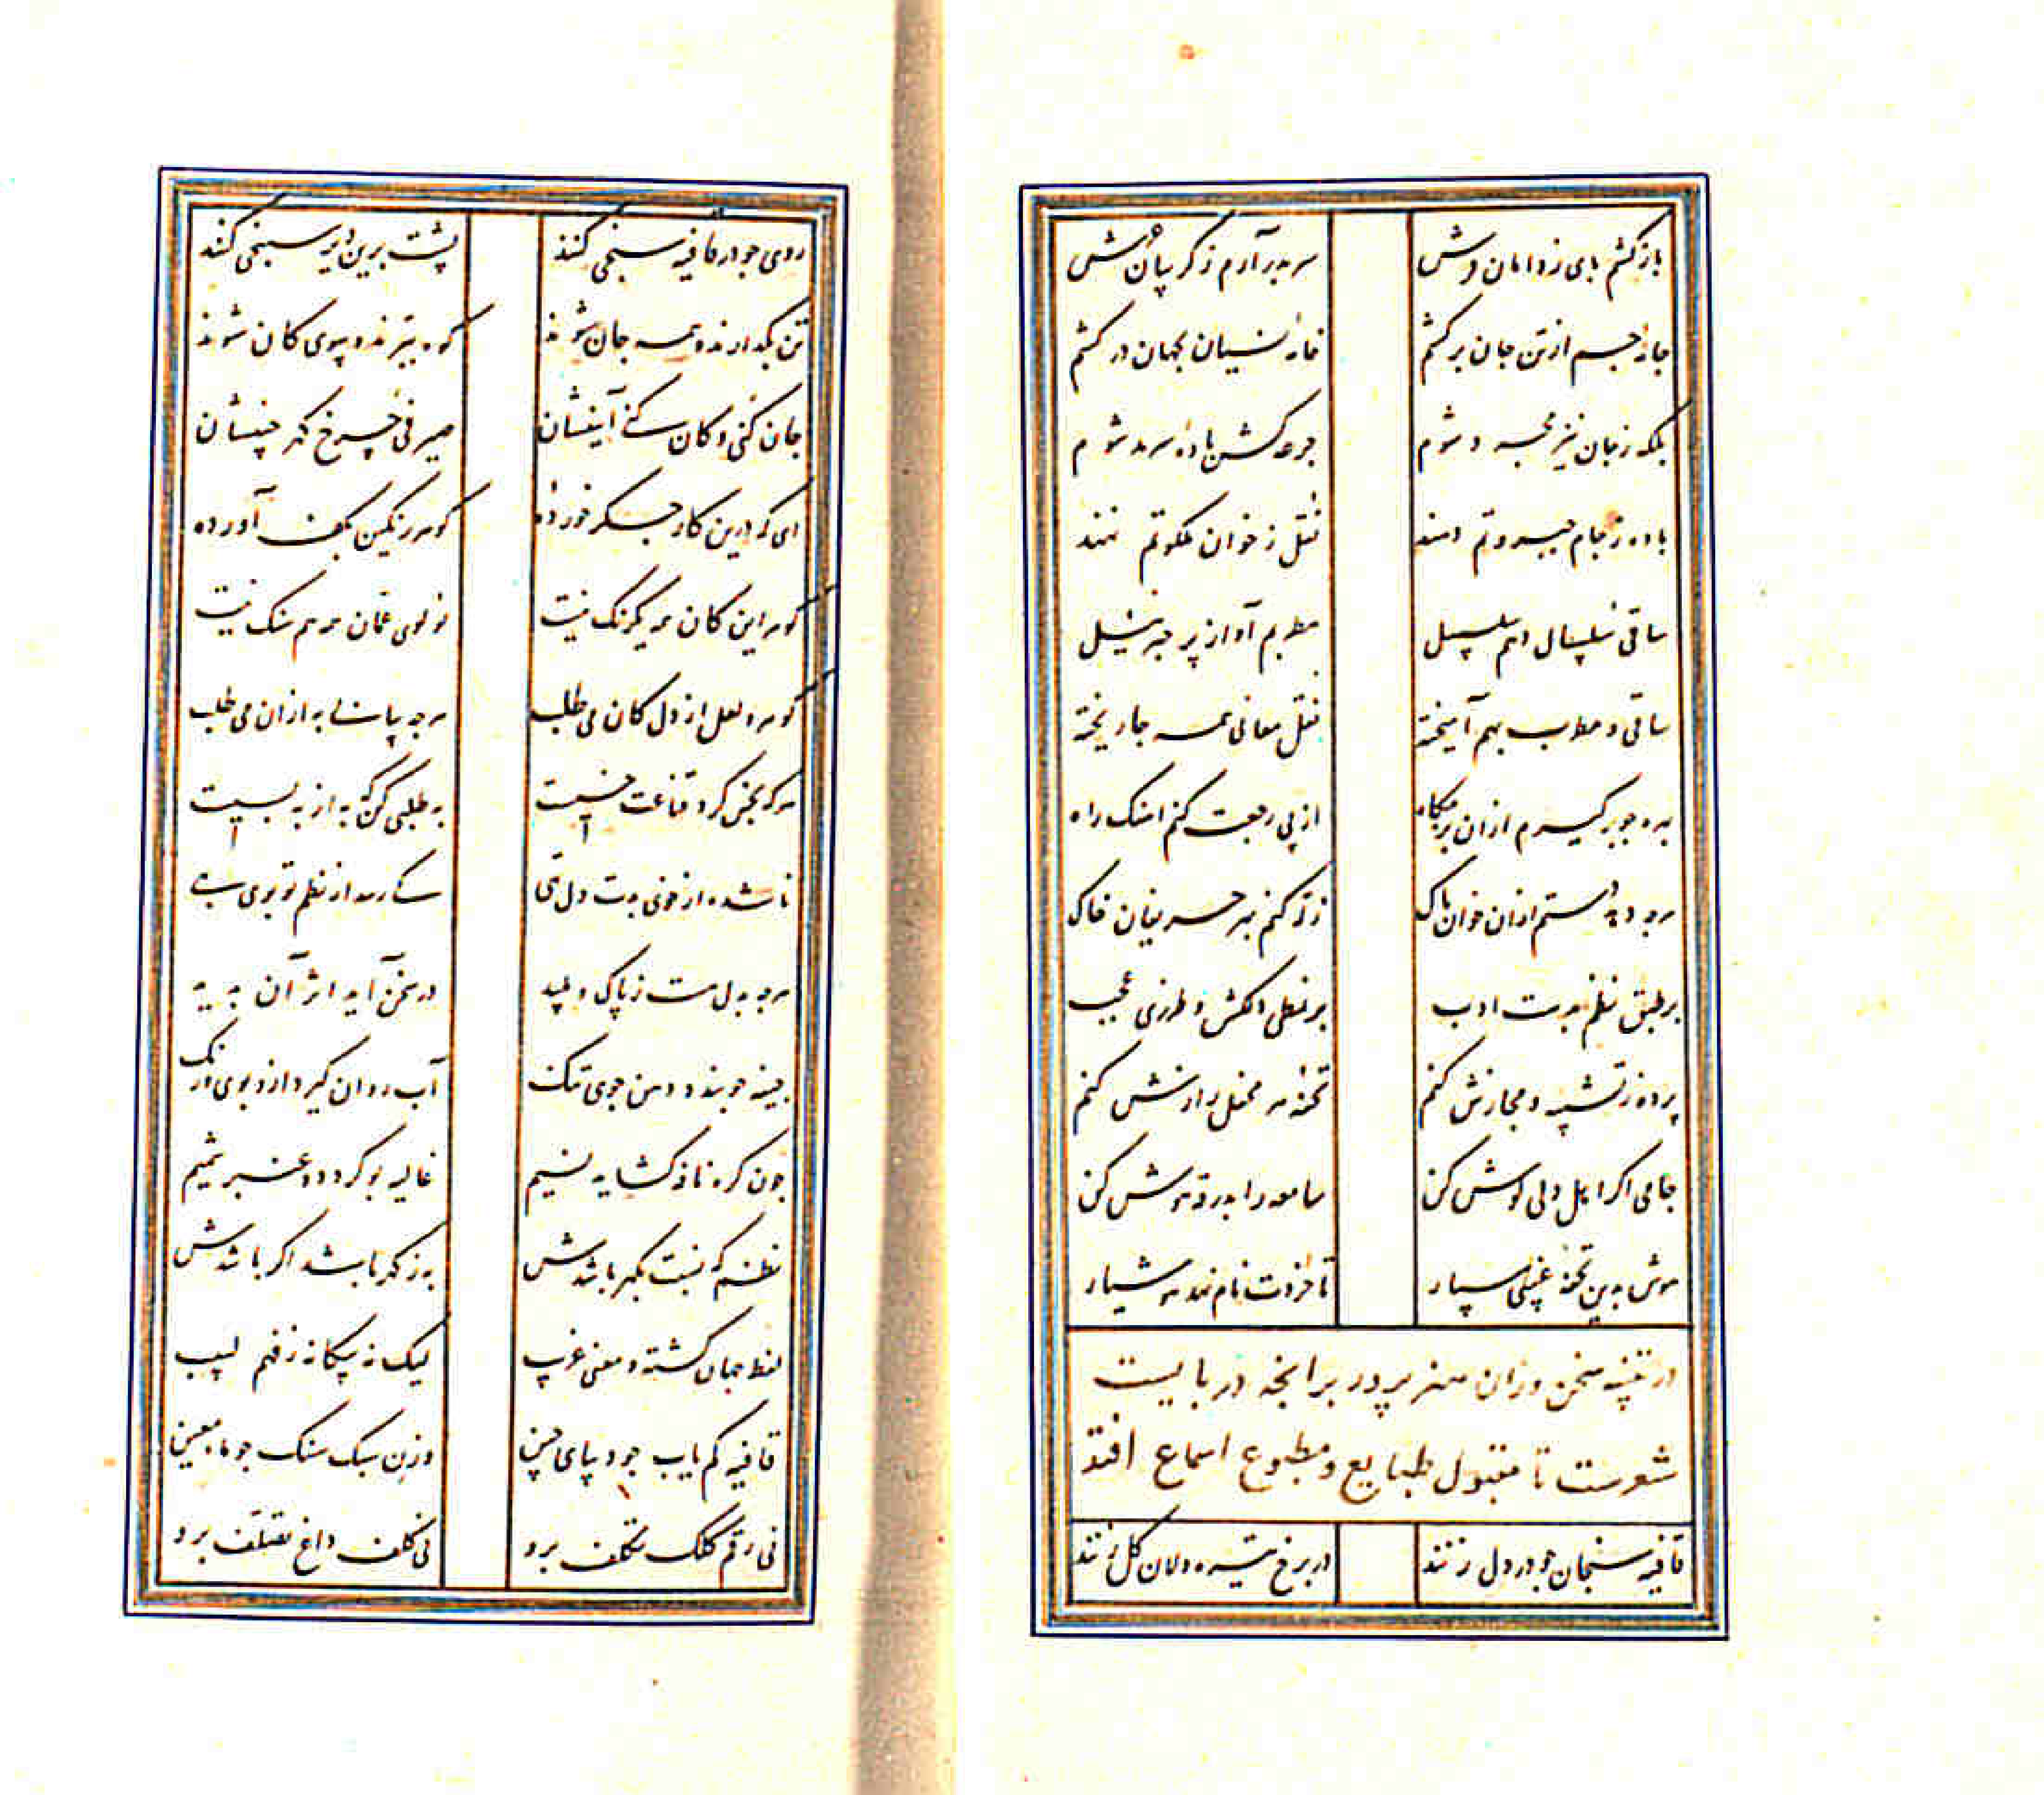 باز کشم پای ز دامان فرش سر بدر آرم ز کریبان عرش
جامهٔ جسم از تن جان برکشم خامهٔ نسیان بجهان درکشم
بلکه ز جان نیز مجرد شوم جرعه کش بادهٔ سرمد شوم
باده ز جام جبروتم دهند نقل ز خوان ملکوتم نهند
ساقی سلسال دهم سلسبیل مطربم آواز پر جبرئیل
ساقی و مطرب بهم آمیخته نقل معانی همه جا ریخته
بهره چو برکیرم ازان بزمکاه از پی رجعت کنم آهنک راه
هرچه دهد دستم ازان خوان پاک زله کنم بهر حریفان خاک
بر طبق نظم بدست ادب بر نمطی دلکش و طرزی عجب
پرده ز تشبیه و مجازش کنم تحفهٔ هر محفل رازش کنم
جامی اکر اهل دلی کوش کن سامعه را بدرقهٔ هوش کن
هوش بدین تحفهٔ غیبی سپار تا خردت نام نهد هوشیار
در تنبیه سخن وزان هنر پرور برانچه دربایست
شعرست تا مقبول طبایع و مطبوع اسماع افتد
قافیه سنجان چو در دل زنند در برخ تیره دلان کل زنند
روی چو در قافیه سنجی کنند پشت برین دیر سپنجی کنند
تن بکدازند و همه جان شوند کوه ببرند و پی کان شوند
جان کنی و کان کنی آیینشان صیرفی چرخ کهر چینشان
ای که درین کار جکر خورده‌ٔ کوهر رنکین بکف آورده‌ٔ
کوهر این کان همه یکرنک نیست لولوی عمان همه هم سنک نیست
کوهر و لعل از دل کان می طلب هرچه بیابی به ازان می طلب
هرکه بخس کرد قناعت خسیست به طلبی کن که به از به بسیست
ناشده از خوی بدت دل تهی کی رسد از نظم تو بوی بهی
هرچه بدل هست ز پاک و پلید در سخن آید اثر آن پدید
چون کره نافه کشاید نسیم غالیه بو کردد و عنبر شمیم
نظم که نسبت بکهر باشدش به ز کهر باشد اکر باشدش
لفظ جهان کشته و معنی غریب لیک نه بیکانه ز فهم لبیب
قافیه کم یاب وزن سبک سنک چو ماء معین
نی رقم کلک تکلف برو نی کلف داغ تعسف برو